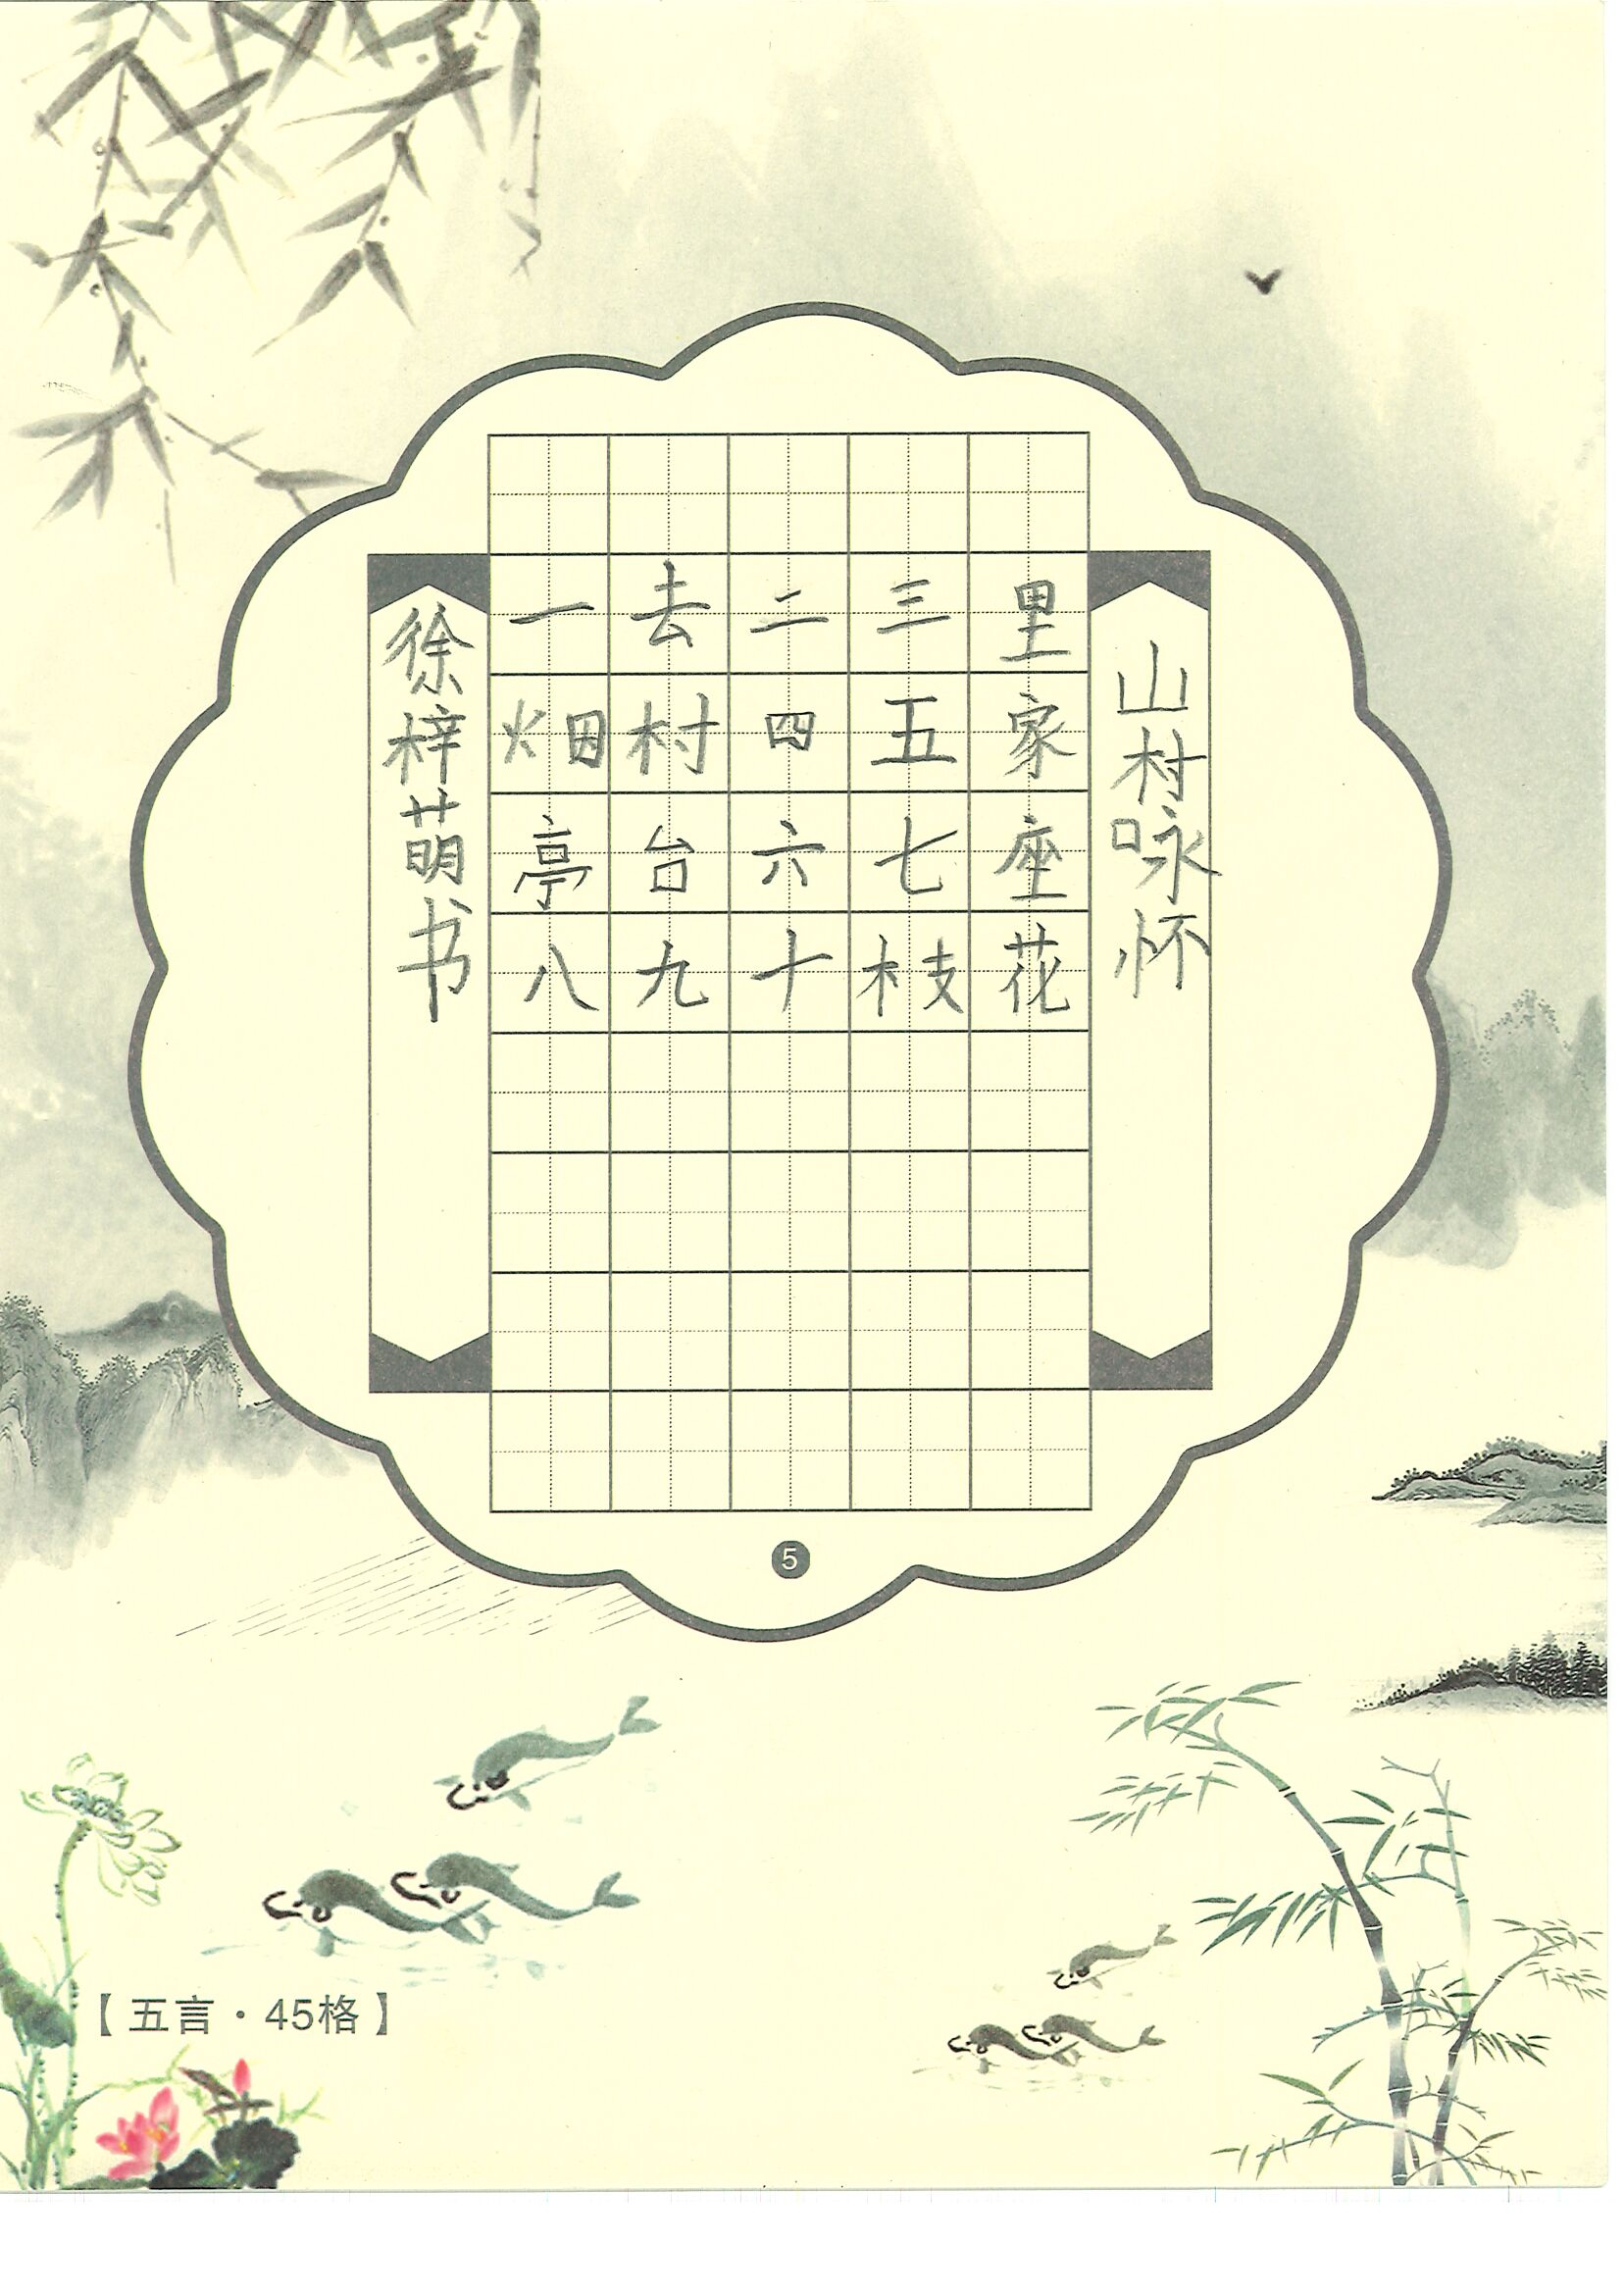 山村咏怀
一去二三里
烟村四五家
亭台六七座
八九十枝花
徐梓萌书
5
【五言·45格】